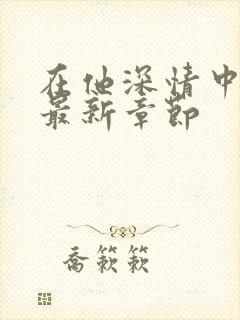 在他深情中
最新章節
喬簌簌